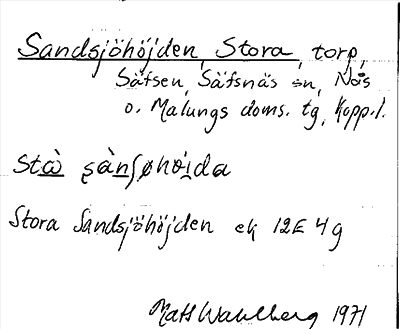 Sandsjöhöjden, Stora, torp,
Säfsen, Säfsnäs sn, Nås
o. Malungs doms. tg, Kopp.l.
stὰ sὰnʃøhø̀ıda
Stora Sandsjöhöjden ek 12E 4g
Mats Wahlberg 1971